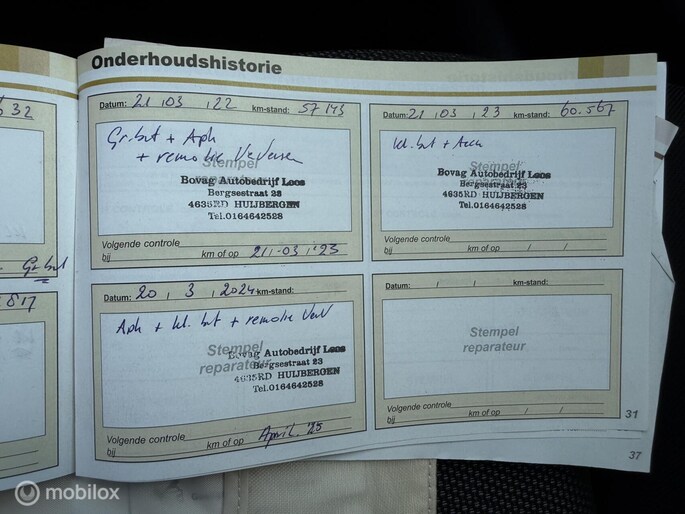 Onderhoudshistorie
Datum: 21 , 03 , 22 km-stand: 57 143
Gr. but + Apk
+ remolie Verversen
Stempel
reparateur
Bovag Autobedrijf Loos
Bergsestraat 23
4635RD HUIJBERGEN
Tel.0164642528
Volgende controle
bij km of op 21, -03 , '23
Datum: 21 , 03 , 23 km-stand: 60.567
kl. but +
Stempel
reparateur
Bovag Autobedrijf Loos
Bergsestraat 23
4635RD HUIJBERGEN
Tel.0164642528
Volgende controle
bij km of op / /
Datum: 20 , 3 , 2024 km-stand:
Apk + kl. but + remolie Verv
Stempel
reparateur
Bovag Autobedrijf Loos
Bergsestraat 23
4635RD HUIJBERGEN
Tel.0164642528
Volgende controle
bij km of op April. '25
Datum: / / km-stand:
Stempel
reparateur
Volgende controle
bij km of op / /
31
37
32
Gr. but
817
mobilox